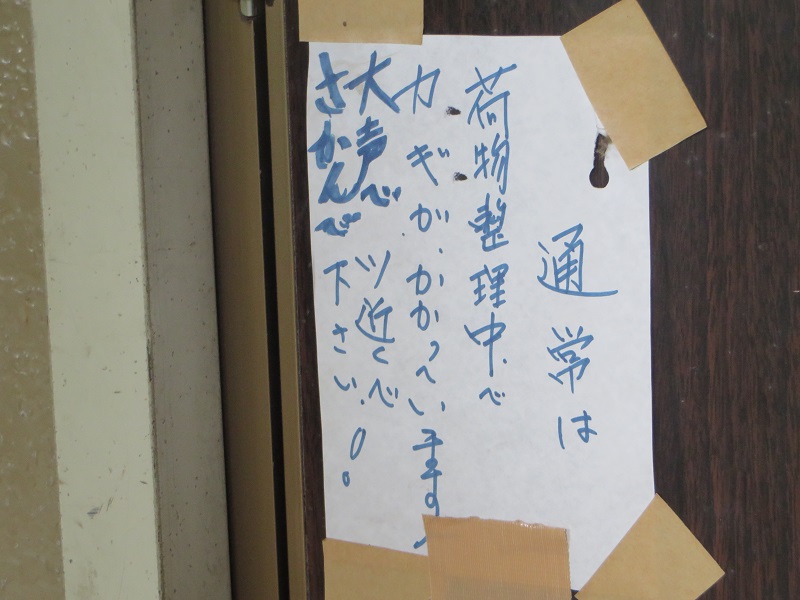 通常は
荷物整理中で
カギがかかっています
大声で 近くで
さかんで下さい!